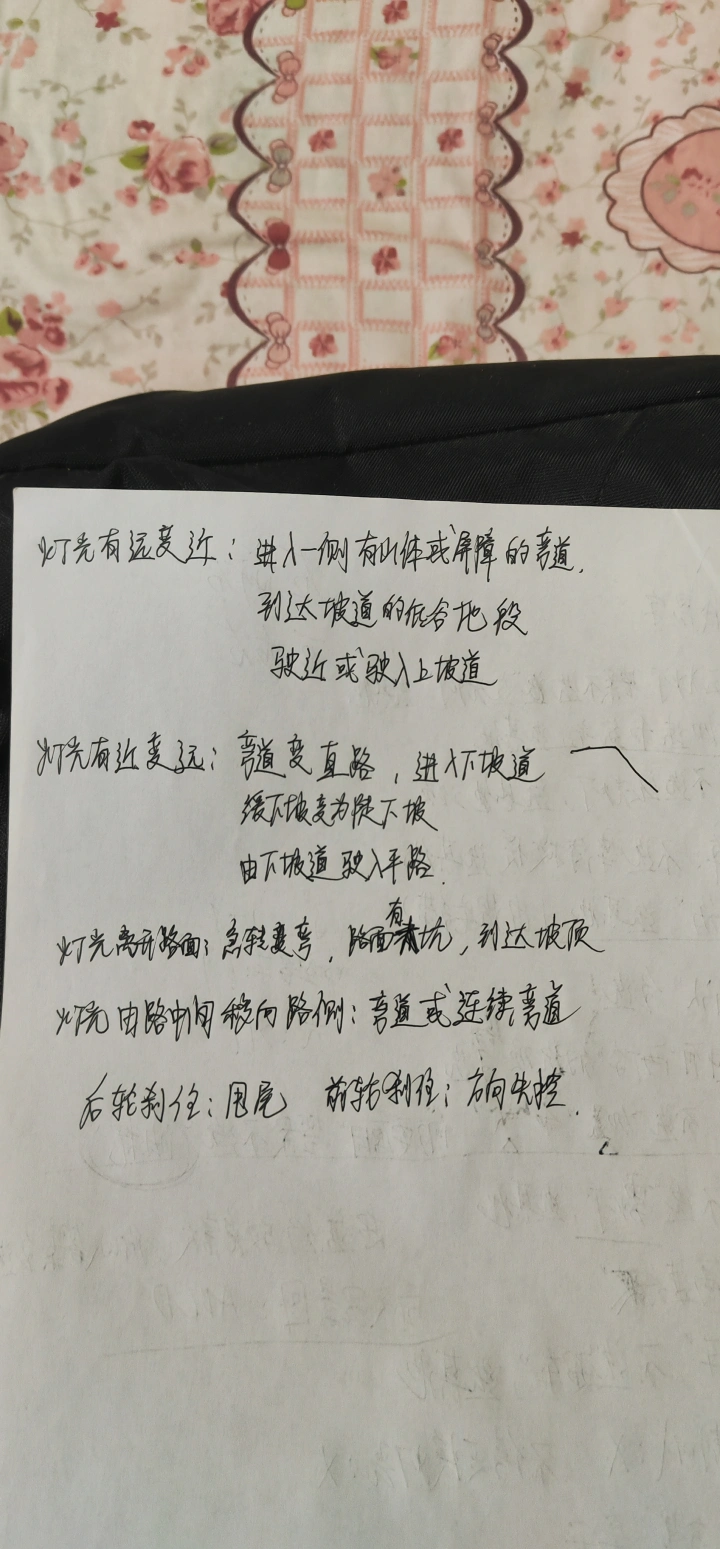 灯光有远变近：进入一侧有山体或屏障的弯道.
到达坡道的低谷地段
驶近或驶入上坡道
灯光有近变远：弯道变直路，进入下坡道
缓下坡变为陡下坡
由下坡道驶入平路.
灯光离开路面：急转变弯，路面有坑，到达坡顶
灯光由路中间移向路侧：弯道或连续弯道
后轮刹住：甩尾 前轮刹住：方向失控.